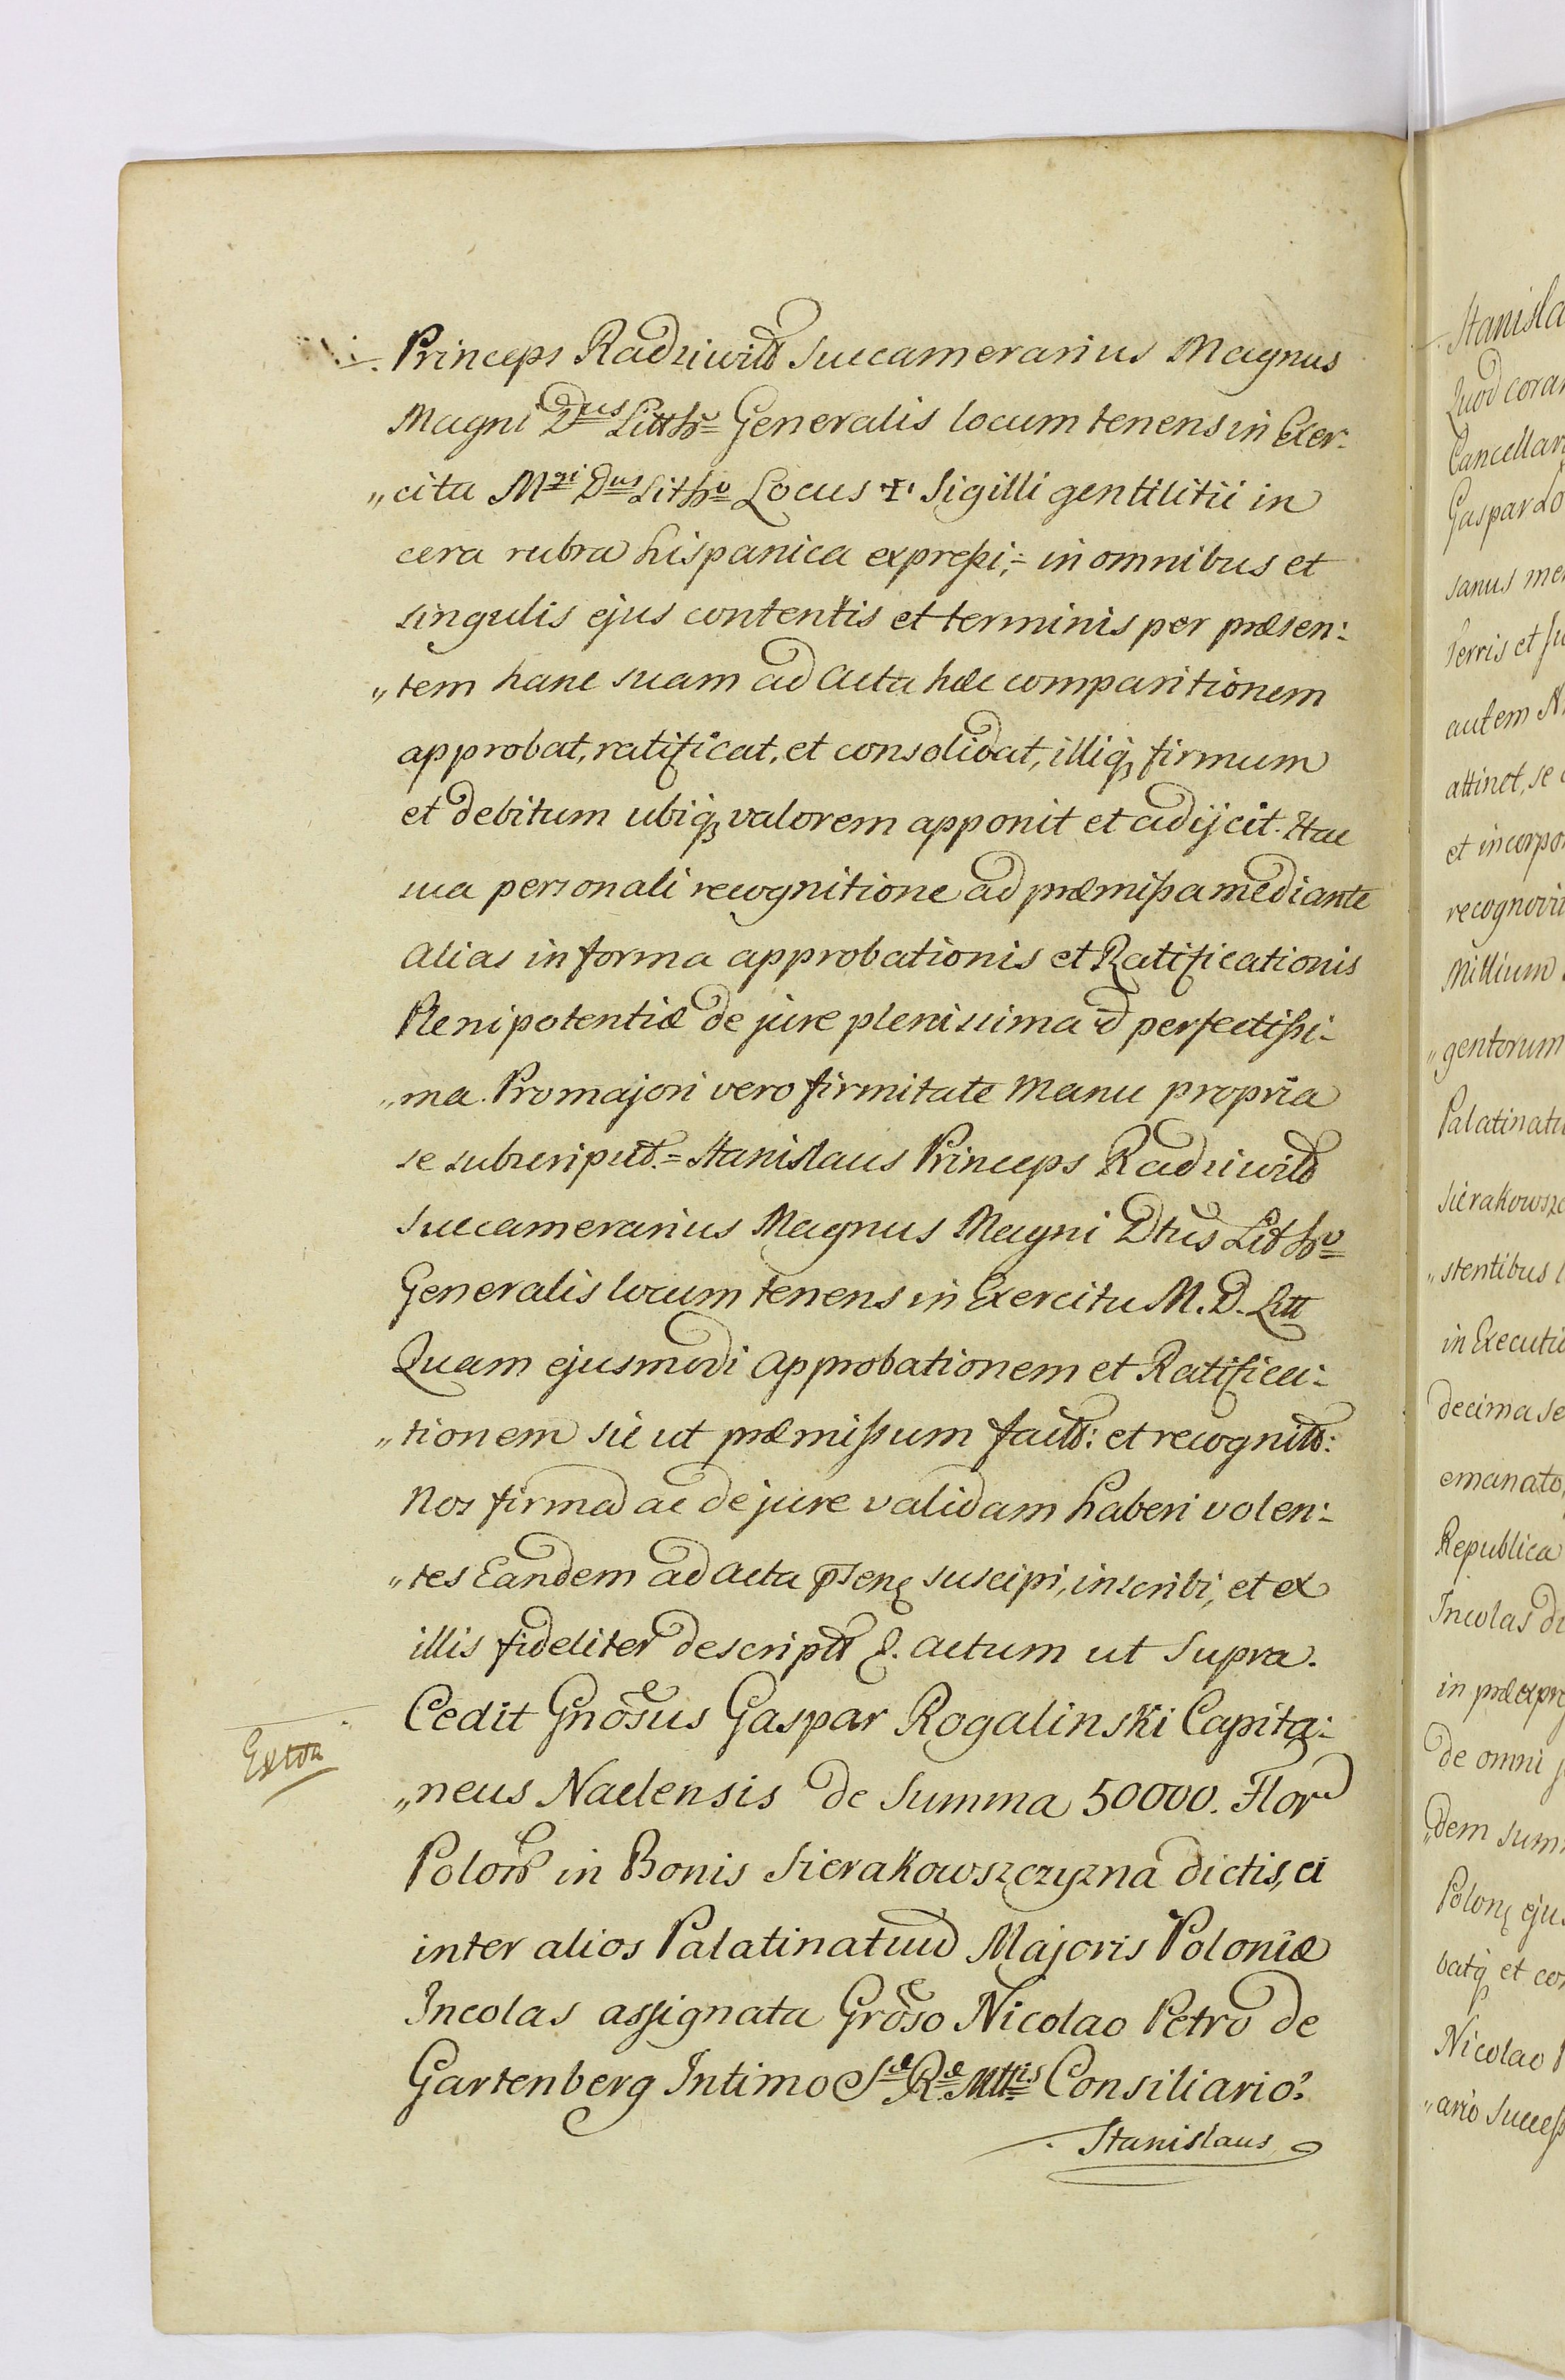 Princeps Radziwill Succamerarius Magnus
Magni Dus Litthv Generalis locum tenens in Exer:
„citu Mgni Dus Lithv Locus + Sigilli gentilitii in
cera rubra hispanica expreßi,= in omnibus et
singulis ejus contentis et terminis per præsen:
„tem hanc suam ad Acta hæc comparitionem
approbat, ratificat, et consolidat, illiq, firmum
et debitum ubiq, valorem apponit et adijcit. Hac
sua personali recognitione ad præmißa mediante
alias in forma approbationis et Ratificationis
Plenipotentiæ de jure plenissima et perfectißi=
„ma. Pro majori vero firmitate manu propria
se subscripsit.= Stanislaus Princeps Radziwill
Succamerarius Magnus Magni Dtus Lithv
Generalis locum tenens in Exercitu M. D. Litt
Quam ejusmodi approbationem et Ratifica=
„tionem sic ut præmißum fact: et recognit:
Nos firmã ac de jure validam haberi volen:
„tes Eandem ad acta psenç suscipi, inscribi, et ex
illis fideliter descriptt &. actum ut Supra.
Cedit Gnosus Gaspar Rogalinski Capita:
Extra
„neus Naclensis de Summa 50000. Flor
Polon in Bonis Sierakowszczyzna dictis, ei
inter alios Palatinatuũ Majoris Poloniæ
Incolas assignata Groso Nicolao Petro de
Gartenberg Intimo Sæ Ræ Mttis Consiliario.
Stanislaus
Stanisla
Quod cora
Cancellar
Gaspar
sanus me
Terris et
autem
attinet, se
et incorpo
recognovi
Millium
„gentorum
Palatinatu
Sierakowsz
„stentibus
in Executio
decima se
emanato
Republica
Incolas di
in præexpre
de omni
„dem sum
Polonç eju
batq et co
Nicolao P
„ario Succeß